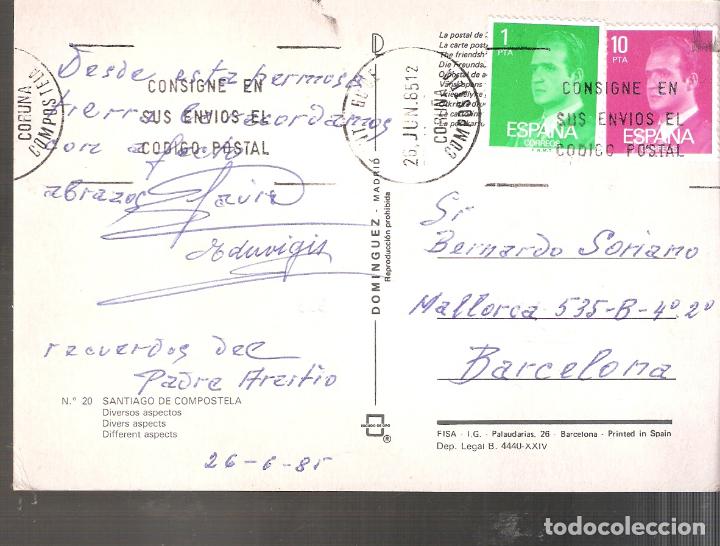 Desde esta hermosa
tierra le recordamos
con afecto
abrazos
Eduvigis
recuerdos del
Padre
Nº 20 SANTIAGO DE COMPOSTELA
Diversos aspectos
Divers aspects
Different aspects
26-6-85
CORUNA
COMPOSTELA
CONSIGNE EN
SUS ENVIOS EL
CODIGO POSTAL
26.JUN.8512
CORUNA
COMPOS
CONSIGNE EN
SUS ENVIOS EL
CODIGO POSTAL
DOMINGUEZ - MADRID
Reproducción prohibida
ESCUDO DE ORO
®
La postal de
La carte post
The friendsh
Die Freunds
1
PTA
ESPAÑA
CORREOS
10
PTA
ESPAÑA
Sr
Bernardo Soriano
Mallorca 535-B-4º 2º
Barcelona
FISA - I.G. - Palaudarias, 26 - Barcelona - Printed in Spain
Dep. Legal B. 4440-XXIV
todocoleccion